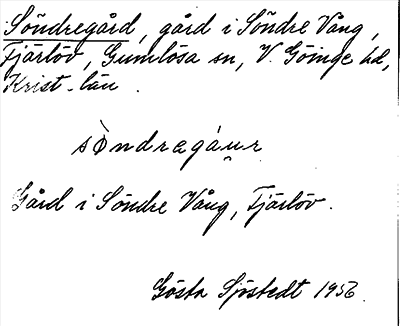 Söndregård, gård i Söndre Vång,
Fjärlöv, Gumlösa sn, V. Göinge hd,
Krist. län.
Gård i Söndre Vång, Fjärlöv.
Gösta Sjöstedt 1956.